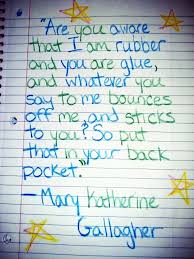 "Are you aware
that I am rubber
and you are glue,
and whatever you
say to me bounces
off me, and sticks
to you? So put
that in your back
pocket."
—Mary Katherine
Gallagher